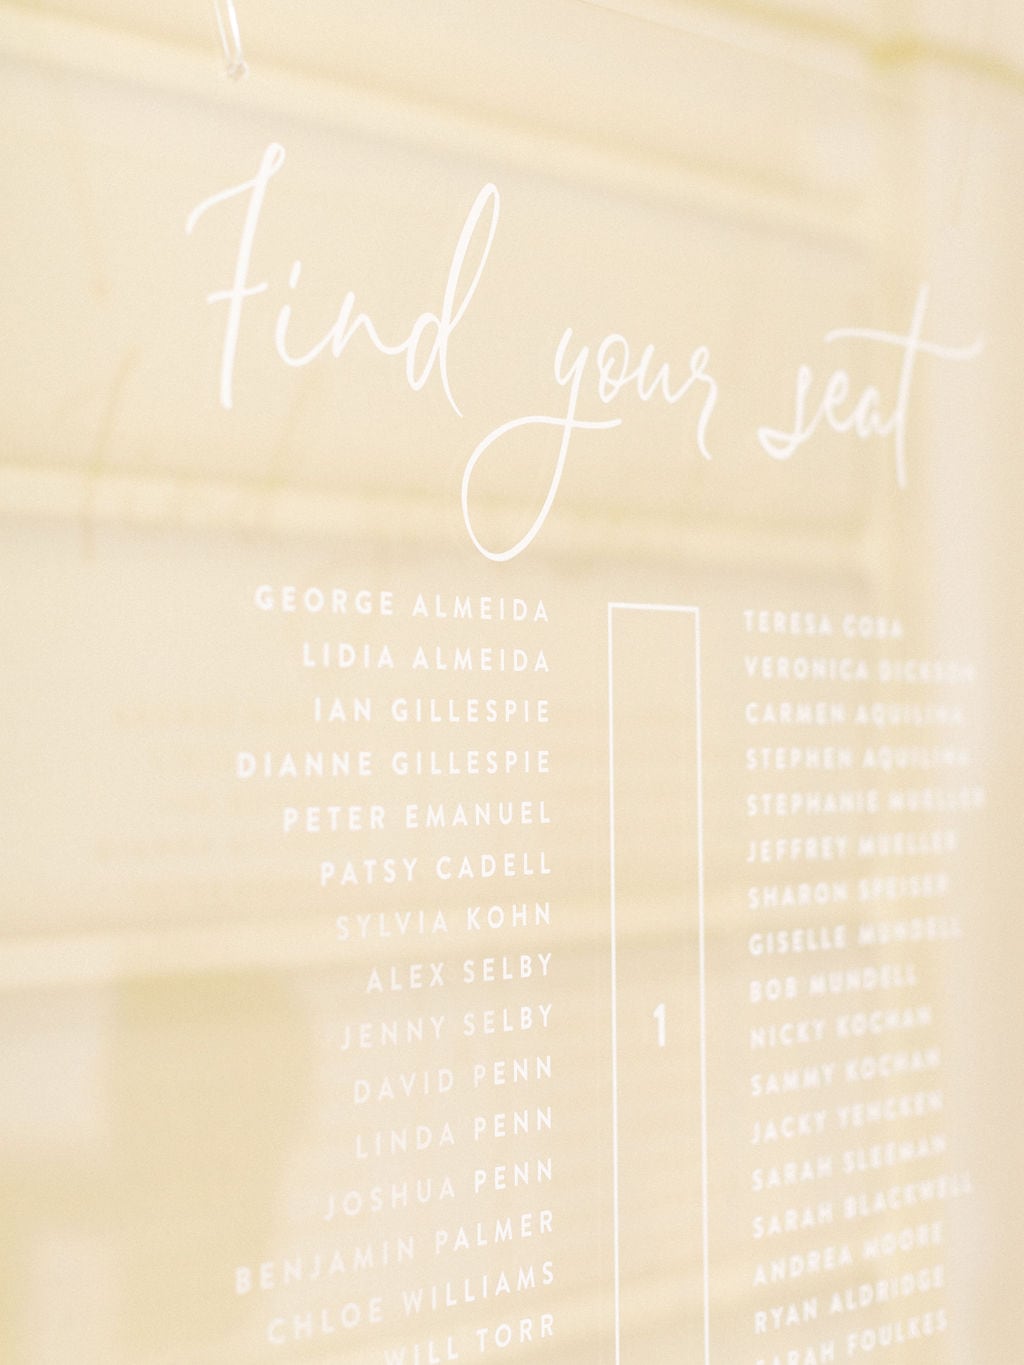 Find your seat
GEORGE ALMEIDA
LIDIA ALMEIDA
IAN GILLESPIE
DIANNE GILLESPIE
PETER EMANUEL
PATSY CADELL
SYLVIA KOHN
ALEX SELBY
JENNY SELBY
DAVID PENN
LINDA PENN
JOSHUA PENN
BENJAMIN PALMER
CHLOE WILLIAMS
WILL TORR
1
TERESA
VERONICA DICKSON
CARMEN AQUILINA
STEPHEN AQUILINA
STEPHANIE MUELLER
JEFFREY MUELLER
SHARON SPEISER
GISELLE MUNDELL
BOB MUNDELL
NICKY KOCHAN
SAMMY KOCHAN
JACKY YENCKEN
SARAH SLEEMAN
SARAH BLACKWELL
ANDREA MOORE
RYAN ALDRIDGE
SARAH FOULKES